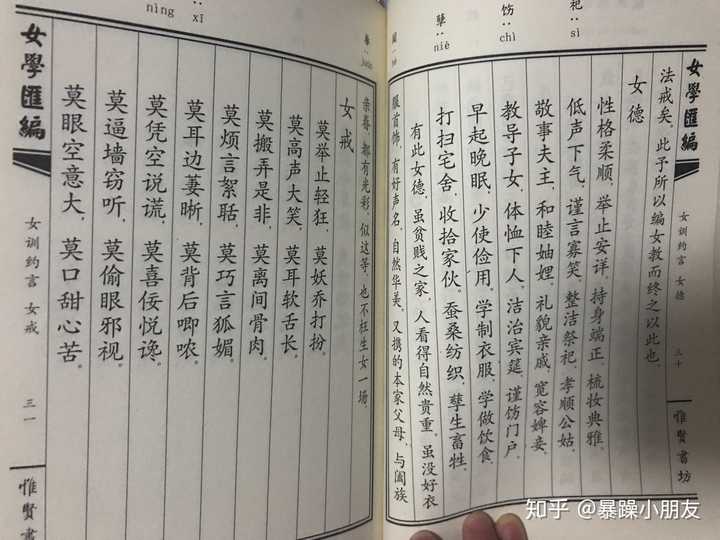 祀：sì
饬：chì
孽：niè
女學匯編
女训约言 女德
三十
惟賢書坊
法戒矣，此予所以编女教而终之以此也。
女德
性格柔顺，举止安详，持身端正，梳妆典雅，
低声下气，谨言寡笑，整洁祭祀，孝顺公姑，
敬事夫主，和睦妯娌，礼貌亲戚，宽容婢妾，
教导子女，体恤下人，洁治宾筵，谨饬门户，
早起晚眠，少使俭用，学制衣服，学做饮食，
打扫宅舍，收拾家伙，蚕桑纺织，孽生畜牲。
有此女德，虽贫贱之家，人看得自然贵重，虽没好衣
服首饰，有好声名，自然华美，又携的本家父母，与阖族
亲眷，都有光彩，似这等，也不枉生女一场。
女戒
莫举止轻狂，莫妖乔打扮。
莫高声大笑，莫耳软舌长。
莫搬弄是非，莫离间骨肉。
莫烦言絮聒，莫巧言狐媚。
莫耳边萋哳，莫背后唧哝。
莫凭空说谎，莫喜佞悦谗。
莫逼墙窃听，莫偷眼邪视。
莫眼空意大，莫口甜心苦。
nìng
xī
女學匯編
女训约言 女戒
三一
惟賢書
知乎 @暴躁小朋友